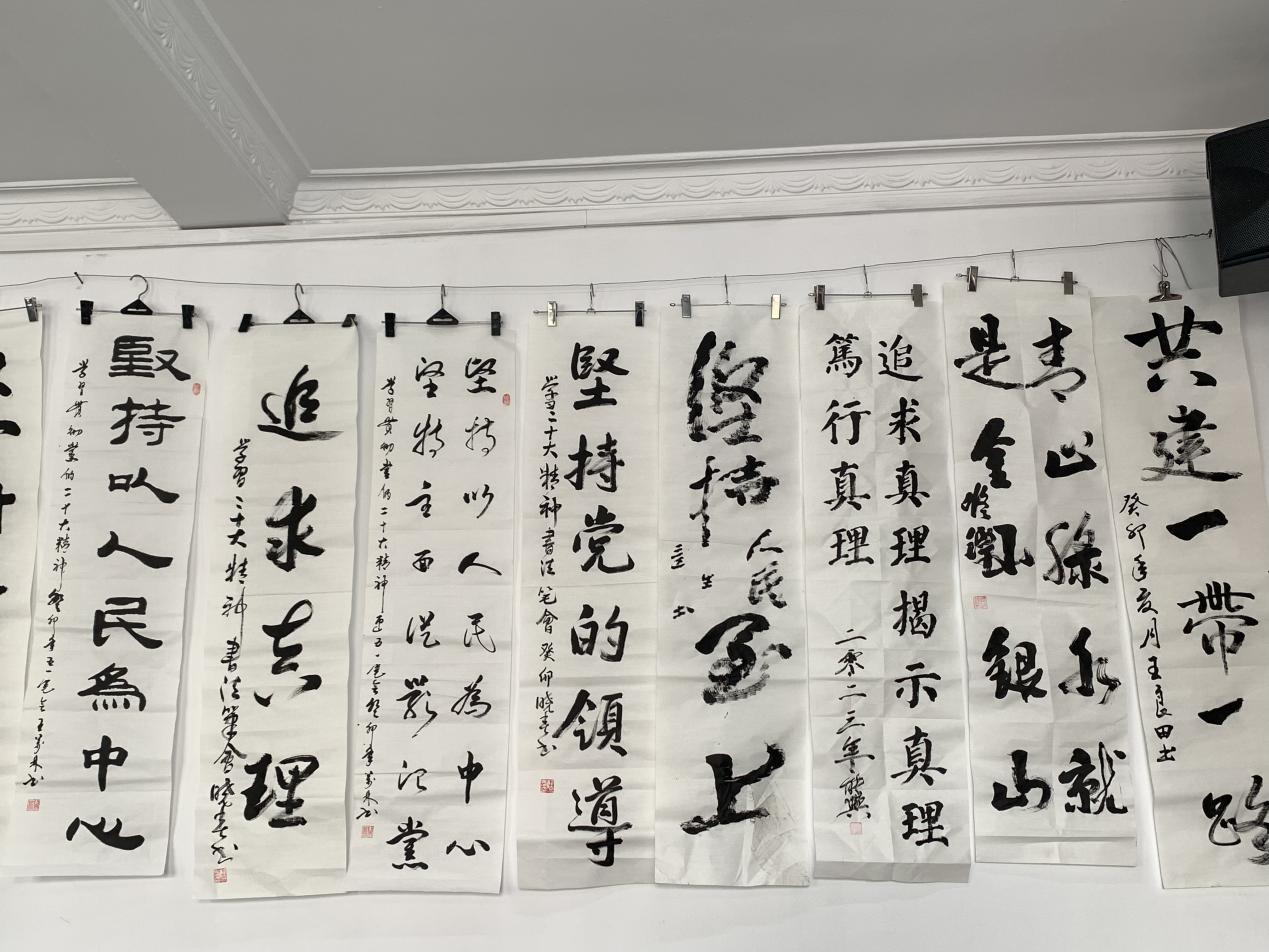 共建一帶一路
癸卯年夏月王良田书
青山綠水就
是金山銀山
追求真理揭示真理
篤行真理
二零二三年
堅持人民至上
堅持党的領導
學習二十大精神書法笔會癸卯曉春书
堅持以人民為中心
堅持全面從嚴治黨
学習貫彻党的二十大精神
追求真理
學習二十大精神書法筆會曉春书
堅持以人民為中心
学習貫彻党的二十大精神癸卯年五一笔会